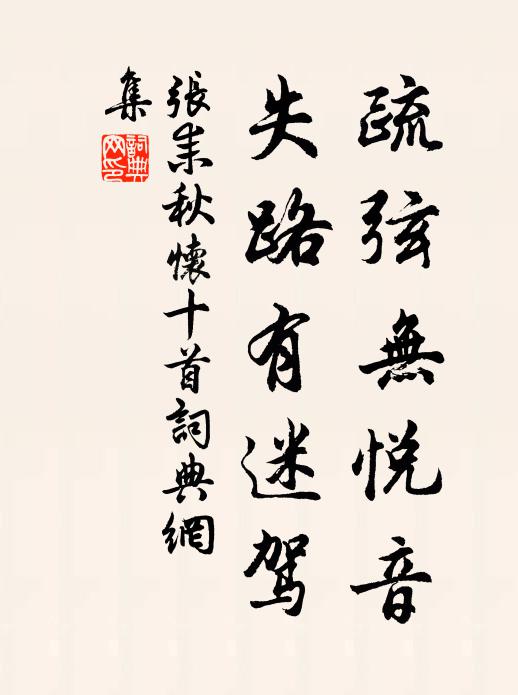 疏弦無悦音
失路有迷駕
張耒秋懷十首詞典網
集
詞典
网印